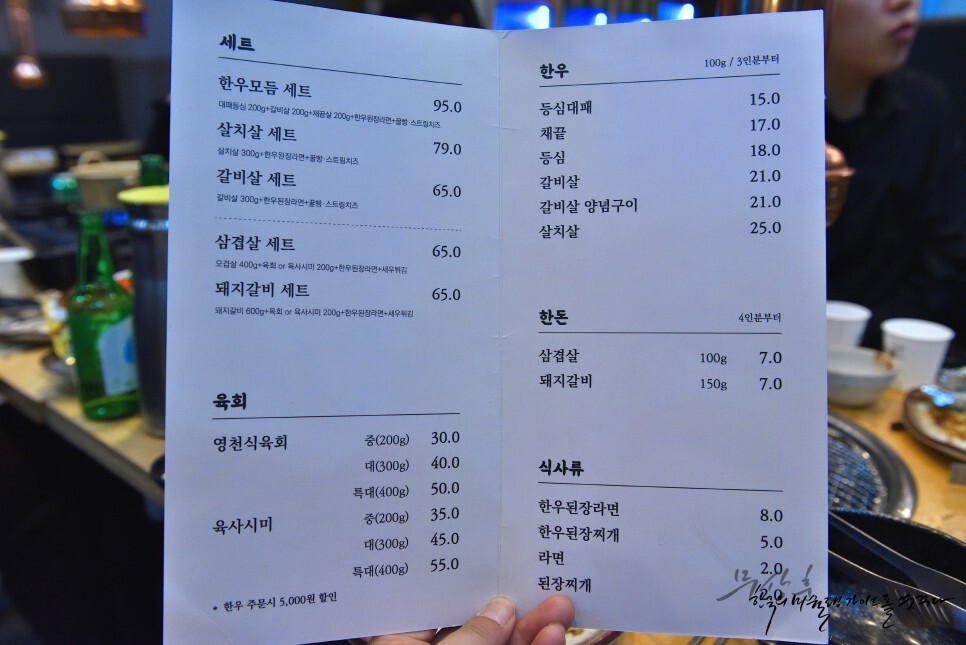 세트
한우모듬 세트 95.0
대패등심 200g+갈비살 200g+채끝살 200g+한우된장라면+꿀빵·스트링치즈
살치살 세트 79.0
살치살 300g+한우된장라면+꿀빵·스트링치즈
갈비살 세트 65.0
갈비살 300g+한우된장라면+꿀빵·스트링치즈
삼겹살 세트 65.0
오겹살 400g+육회 or 육사시미 200g+한우된장라면+새우튀김
돼지갈비 세트 65.0
돼지갈비 600g+육회 or 육사시미 200g+한우된장라면+새우튀김
육회
영천식육회 중(200g) 30.0
대(300g) 40.0
특대(400g) 50.0
육사시미 중(200g) 35.0
대(300g) 45.0
특대(400g) 55.0
• 한우 주문시 5,000원 할인
한우 100g / 3인분부터
등심대패 15.0
채끝 17.0
등심 18.0
갈비살 21.0
갈비살 양념구이 21.0
살치살 25.0
한돈 4인분부터
삼겹살 100g 7.0
돼지갈비 150g 7.0
식사류
한우된장라면 8.0
한우된장찌개 5.0
라면 2.0
된장찌개
한국의 미슐랭 가이드를 꿈꾸다